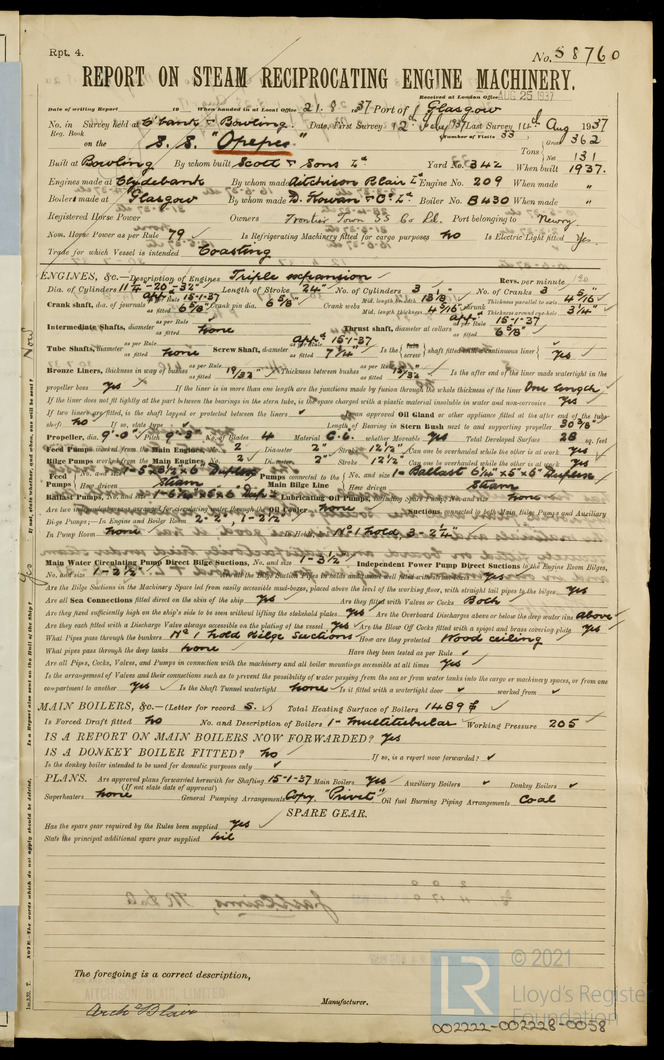 Rpt. 4.
No. 58760
REPORT ON STEAM RECIPROCATING ENGINE MACHINERY.
Received at London Office AUG 25 1937
Date of writing Report 19 When handed in at Local Office 21. 8. 1937 Port of Glasgow
No. in Survey held at C'bank & Bowling. Date, First Survey 12th 1937 Last Survey 14th Aug 1937
Reg. Book (Number of Visits 53
on the S. S. "
Gross 362
Tons
Net 131
Built at Bowling By whom built Scott & Sons Ld Yard No. 342 When built 1937.
Engines made at Clydebank By whom made Aitchison Blair Ld Engine No. 209 When made "
Boilers made at Glasgow By whom made D. Rowan & Co. Ld Boiler No. B430 When made "
Registered Horse Power Owners Frontier Town SS Co. Ld. Port belonging to Newry
Nom. Horse Power as per Rule 79 Is Refrigerating Machinery fitted for cargo purposes no Is Electric Light fitted Yes
Trade for which Vessel is intended Coasting
ENGINES, &c.—Description of Engines Triple expansion Revs. per minute
Dia. of Cylinders 11¾-20-32" Length of Stroke 24" No. of Cylinders 3 No. of Cranks 3
Crank shaft, dia. of journals as per Rule appd 15-1-37 as fitted 6⅝" Crank pin dia. 6⅝" Crank webs Mid. length breadth 13⅛" Mid. length thickness 4 5/16" shrunk Thickness parallel to axis 4 5/16" Thickness around eye-hole 3¼"
Intermediate Shafts, diameter as per Rule as fitted none Thrust shaft, diameter at collars as per Rule appd 15-1-37 as fitted 6⅝"
Tube Shafts, diameter as per Rule as fitted none Screw Shaft, diameter as per Rule appd 15-1-37 as fitted 7¼" Is the tube screw shaft fitted with a continuous liner yes
Bronze Liners, thickness in way of bushes as per Rule as fitted 19/32" Thickness between bushes as per Rule as fitted 15/32" Is the after end of the liner made watertight in the
propeller boss yes If the liner is in more than one length are the junctions made by fusion through the whole thickness of the liner One length
If the liner does not fit tightly at the part between the bearings in the stern tube, is the space charged with a plastic material insoluble in water and non-corrosive yes
If two liners are fitted, is the shaft lapped or protected between the liners an approved Oil Gland or other appliance fitted at the after end of the tube
shaft no Length of Bearing in Stern Bush next to and supporting propeller 30⅝"
Propeller, dia. 9'-0" Pitch 9'-3" No. of Blades 4 Material C.I. whether Moveable yes Total Developed Surface 28 sq. feet
Feed Pumps worked from the Main Engines, No. 2 Diameter 2" Stroke 12½" Can one be overhauled while the other is at work yes
Bilge Pumps worked from the Main Engines, No. 2 Diameter 2" Stroke 12½" Can one be overhauled while the other is at work yes
Feed Pumps No. and size 1-5×3½×6 Duplex How driven Steam Pumps connected to the Main Bilge Line No. and size 1-Ballast 6¼"×5"×6" Duplex How driven Steam
Ballast Pumps, No. and size 1-6¼×5×6 Dup. Lubricating Oil Pumps, none
Are two independent means arranged for circulating water through the Oil Cooler none Suctions, connected to both Main Bilge Pumps and Auxiliary
Bilge Pumps;—In Engine and Boiler Room 2-2", 1-2½"
In Pump Room none In Holds, &c. No 1 hold, 3-2¼"
Main Water Circulating Pump Direct Bilge Suctions, No. and size 1-3½" Independent Power Pump Direct Suctions to the Engine Room Bilges,
No. and size 1-2½" Are all the Bilge Suction Pipes in holds and tunnel well fitted with strum-boxes Yes
Are the Bilge Suctions in the Machinery Space led from easily accessible mud-boxes, placed above the level of the working floor, with straight tail pipes to the bilges yes
Are all Sea Connections fitted direct on the skin of the ship yes Are they fitted with Valves or Cocks Both
Are they fixed sufficiently high on the ship's side to be seen without lifting the stokehold plates yes Are the Overboard Discharges above or below the deep water line above
Are they each fitted with a Discharge Valve always accessible on the plating of the vessel yes Are the Blow Off Cocks fitted with a spigot and brass covering plate yes
What Pipes pass through the bunkers No 1 hold Bilge Suctions How are they protected Wood ceiling
What pipes pass through the deep tanks none Have they been tested as per Rule
Are all Pipes, Cocks, Valves, and Pumps in connection with the machinery and all boiler mountings accessible at all times yes
Is the arrangement of Valves and their connections such as to prevent the possibility of water passing from the sea or from water tanks into the cargo or machinery spaces, or from one
compartment to another yes Is the Shaft Tunnel watertight none Is it fitted with a watertight door worked from
MAIN BOILERS, &c.—(Letter for record S.) Total Heating Surface of Boilers 1489
Is Forced Draft fitted no No. and Description of Boilers 1- multitubular Working Pressure 205
IS A REPORT ON MAIN BOILERS NOW FORWARDED? Yes
IS A DONKEY BOILER FITTED? no If so, is a report now forwarded?
Is the donkey boiler intended to be used for domestic purposes only
PLANS. Are approved plans forwarded herewith for Shafting 15-1-37 Main Boilers Yes Auxiliary Boilers Donkey Boilers
(If not state date of approval)
Superheaters none General Pumping Arrangements Copy. "Privet" Oil fuel Burning Piping Arrangements Coal
SPARE GEAR.
Has the spare gear required by the Rules been supplied yes
State the principal additional spare gear supplied nil
The foregoing is a correct description,
AITCHISON BLAIR, LIMITED
Arch Blair
Manufacturer.
NOTE.—The words which do not apply should be deleted.
Is a Report also sent on the Hull of the Ship? Yes
If not, state whether, and when, one will be sent? Now
© 2021
LR
Lloyd's Register
Foundation
002222-002228-0058